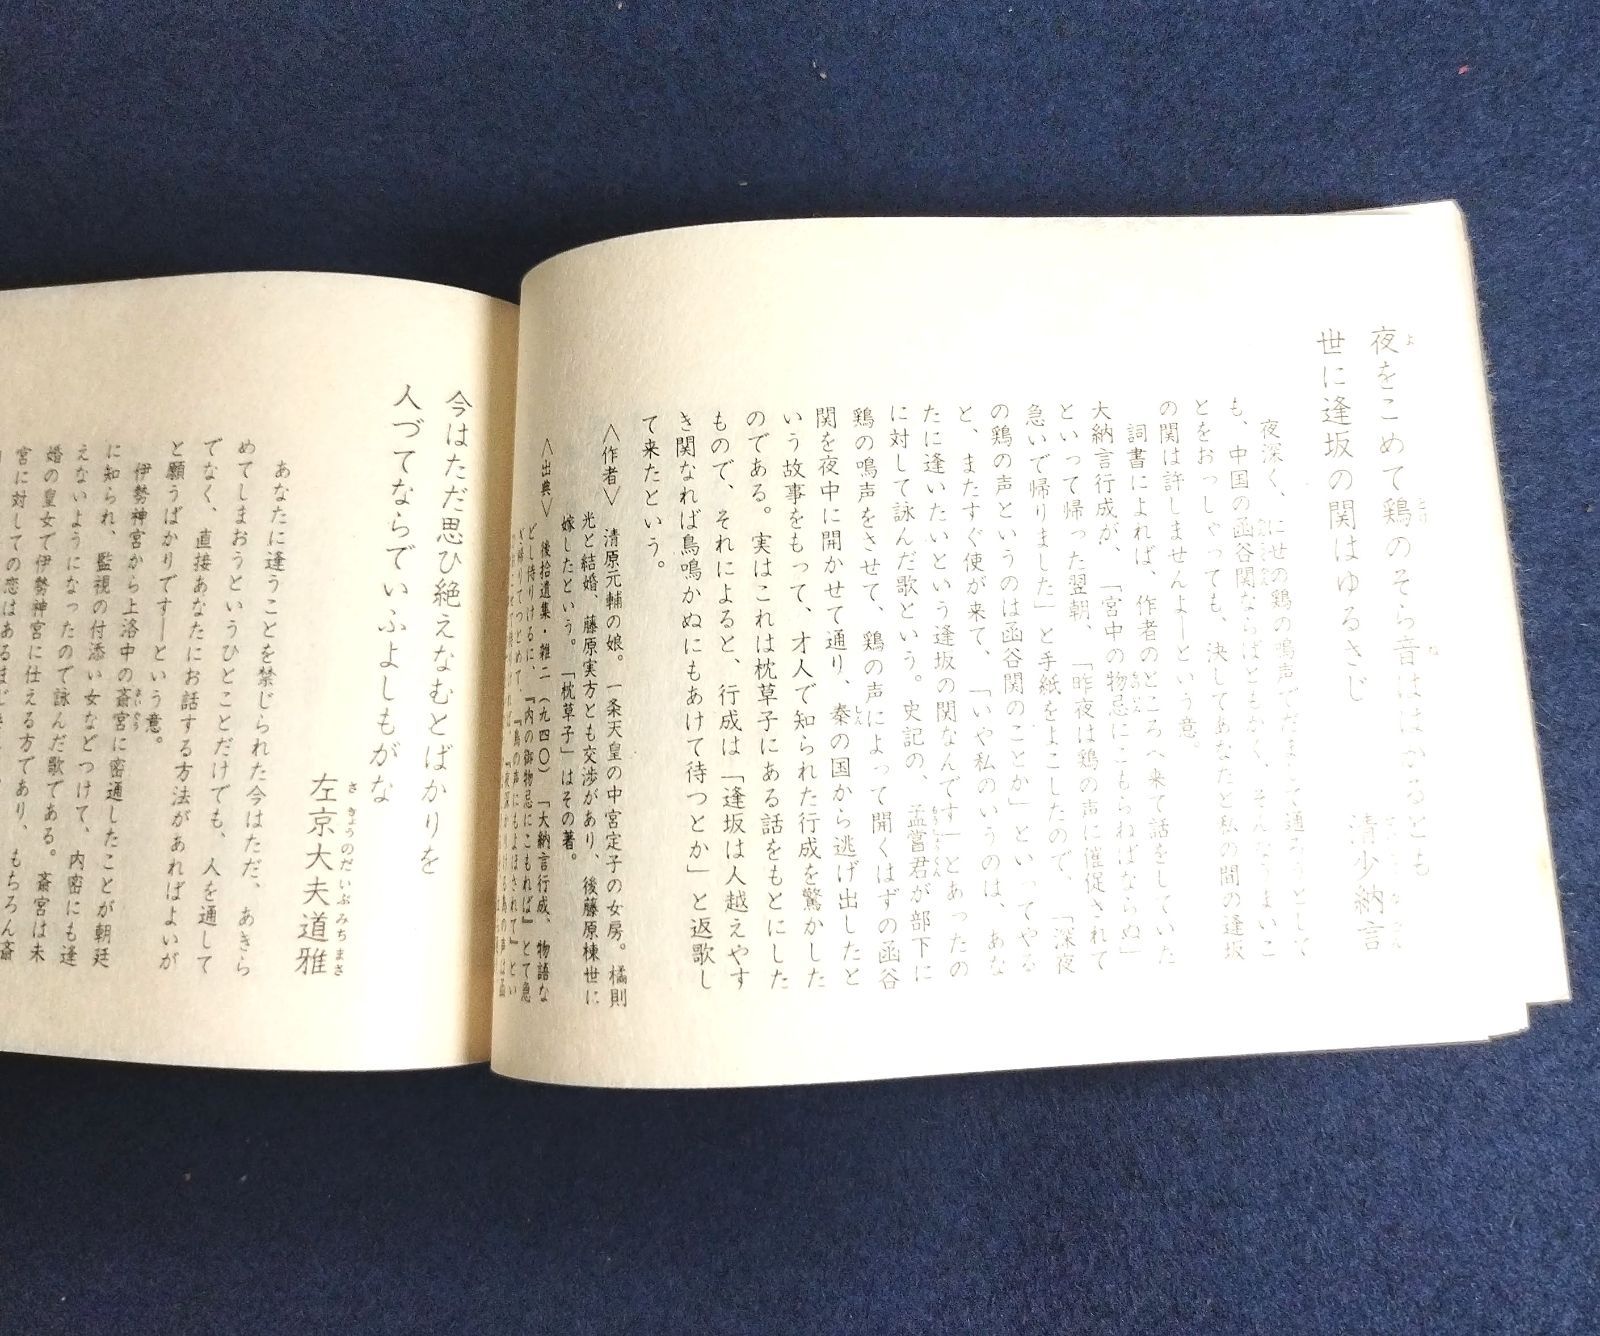 夜をこめて鶏のそら音ははかるとも
世に逢坂の関はゆるさじ
清少納言
夜深く、にせの鶏の鳴声でだまして通ろうとして
も、中国の函谷関ならばともかく、そんなうまいこ
とをおっしゃっても、決してあなたと私の間の逢坂
の関は許しませんよ―という意。
詞書によれば、作者のところへ来て話をしていた
大納言行成が、「宮中の物忌にこもらねばならぬ」
といって帰った翌朝、「昨夜は鶏の声に催促されて
急いで帰りました」と手紙をよこしたので、「深夜
の鶏の声というのは函谷関のことか」といってやる
と、またすぐ使が来て、「いや私のいうのは、あな
たに逢いたいという逢坂の関なんです」とあったの
に対して詠んだ歌という。史記の、孟嘗君が部下に
鶏の鳴声をさせて、鶏の声によって開くはずの函谷
関を夜中に開かせて通り、秦の国から逃げ出したと
いう故事をもって、才人で知られた行成を驚かした
のである。実はこれは枕草子にある話をもとにした
もので、それによると、行成は「逢坂は人越えやす
き関なれば鳥鳴かぬにもあけて待つとか」と返歌し
て来たという。
〈作者〉 清原元輔の娘。一条天皇の中宮定子の女房。橘則
光と結婚、藤原実方とも交渉があり、後藤原棟世に
嫁したという。「枕草子」はその著。
〈出典〉 後拾遺集・雑二（九四〇）「大納言行成、物語な
どし侍りけるに、『内の御物忌にこもれば』とて急
ぎ帰りてつとめて、『鳥の声にもよほされて』とい
今はただ思ひ絶えなむとばかりを
人づてならでいふよしもがな
左京大夫道雅
さきょうのだいぶみちまさ
あなたに逢うことを禁じられた今はただ、あきら
めてしまおうというひとことだけでも、人を通して
でなく、直接あなたにお話する方法があればよいが
と願うばかりです―という意。
伊勢神宮から上洛中の斎宮に密通したことが朝廷
に知られ、監視の付添い女などつけて、内密にも逢
えないようになったので詠んだ歌である。斎宮は未
婚の皇女で伊勢神宮に仕える方であり、もちろん斎
宮に対しての恋は